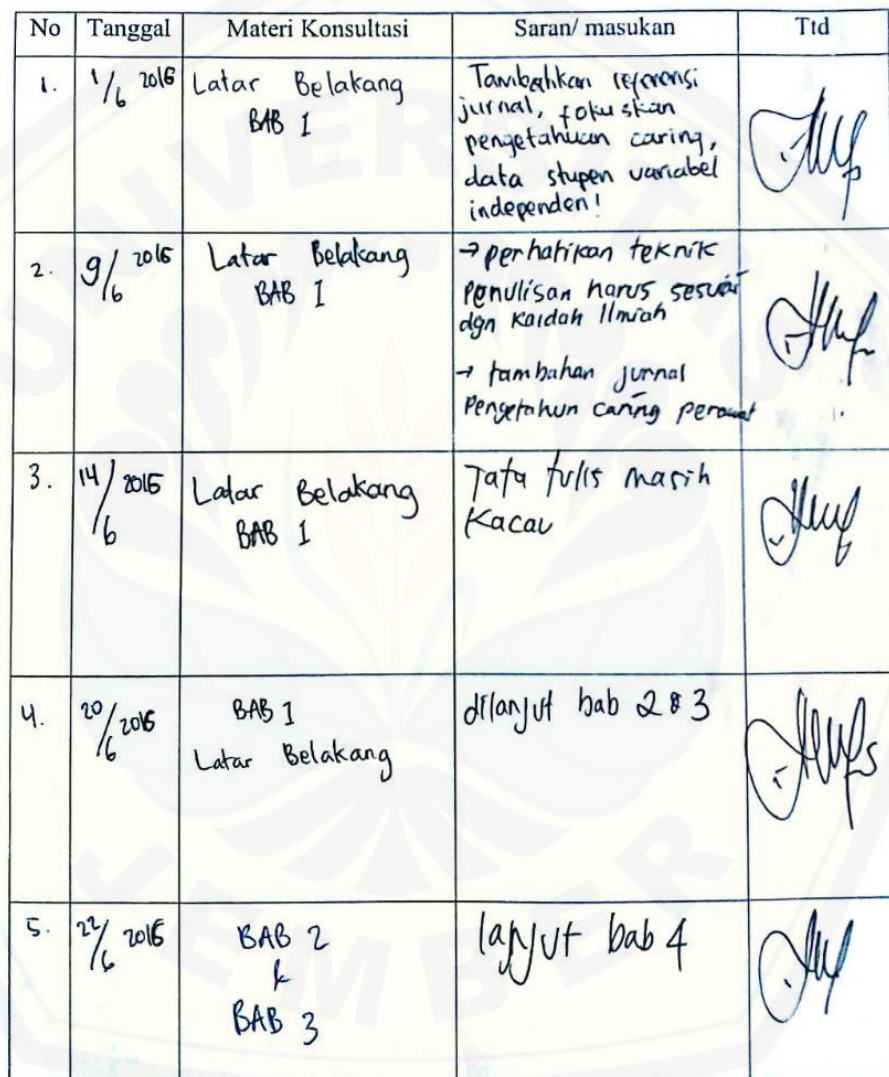 No Tanggal Materi Konsultasi Saran/ masukan Ttd
1. 1/6 2016 Latar Belakang
BAB 1
Tambahkan referensi
jurnal, fokuskan
pengetahuan caring,
data stupen variabel
independen!
2. 9/6 2016 Latar Belakang
BAB I
→ perhatikan teknik
Penulisan harus sesuai
dgn Kaidah Ilmiah
→ tambahan jurnal
Pengetahun caring perawat
3. 14/6 2016 Latar Belakang
BAB 1
Tata tulis masih
Kacau
4. 20/6 2016 BAB 1
Latar Belakang
dilanjut bab 2 & 3
5. 22/6 2016 BAB 2
&
BAB 3
lanjut bab 4
UNIVERSITAS
JEMBER